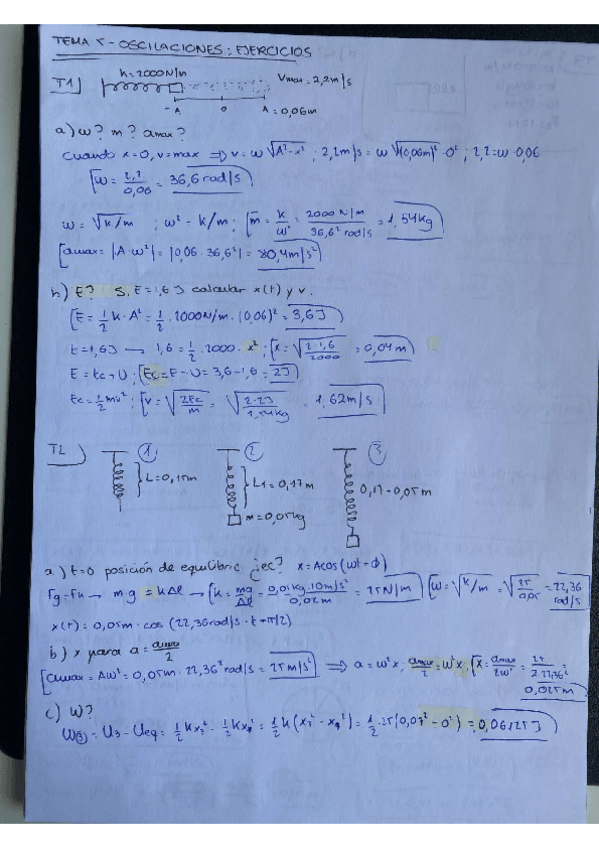 TEMA 5 - OSCILACIONES: EJERCICIOS
T1) k=2000N/m Vmax=2,2m/s
-A 0 A=0,06m
a) w? m? amax?
Cuando x=0, v=max ⇒ v = w √A²-x² ; 2,2m/s = w √(0,06m)²-0² ; 2,2=w·0,06
w = 2,2/0,06 = 36,6 rad/s
w = √k/m ; w² = k/m ; m = k/w² = 2000 N/m / 36,6² rad/s = 1,54kg
amax = |A·w²| = |0,06·36,6²| = 80,4m/s²
b) E? Si E=1,6J calcular x(t) y v.
E = 1/2 k·A² = 1/2 · 2000N/m · (0,06)² = 3,6J
E=1,6J → 1,6 = 1/2 · 2000 · x² ; x = √2·1,6/2000 = 0,04m
E = Ec+U ; Ec = E-U = 3,6-1,6 = 2J
Ec = 1/2 mv² ; v = √2Ec/m = √2·2J/1,54kg = 1,62m/s
T2) 1 2 3
L=0,15m L1=0,17m 0,17-0,05m
m=0,05kg
a) t=0 posición de equilibrio ¿ec? x=Acos(wt+φ)
Fg=Fk → mg = kΔl → k = mg/Δl = 0,05kg·10m/s² / 0,02m = 25N/m w = √k/m = √25/0,05 = 22,36 rad/s
x(t) = 0,05m · cos (22,36rad/s · t + π/2)
b) x para a = amax/2
amax = Aw² = 0,05m · 22,36² rad/s = 25m/s² ⇒ a = w²x ; amax/2 = w²x ; x = amax/2w² = 25/2·22,36²
0,025m
c) W?
= U3 - Ueq = 1/2 kx3² - 1/2 kx² = 1/2 k(x3² - x²) = 1/2 · 25(0,07² - 0²) = 0,06125J